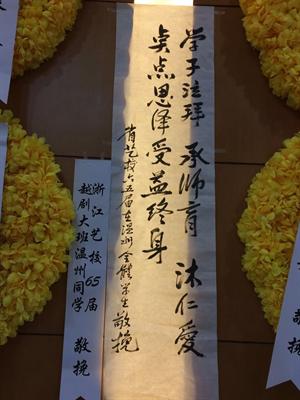 学子泣拜 承师育 沐仁爱
点点恩泽受益终身
省艺校六五届在温州全体学生敬挽
浙江艺校65届
越剧大班温州同学
敬挽
敬挽